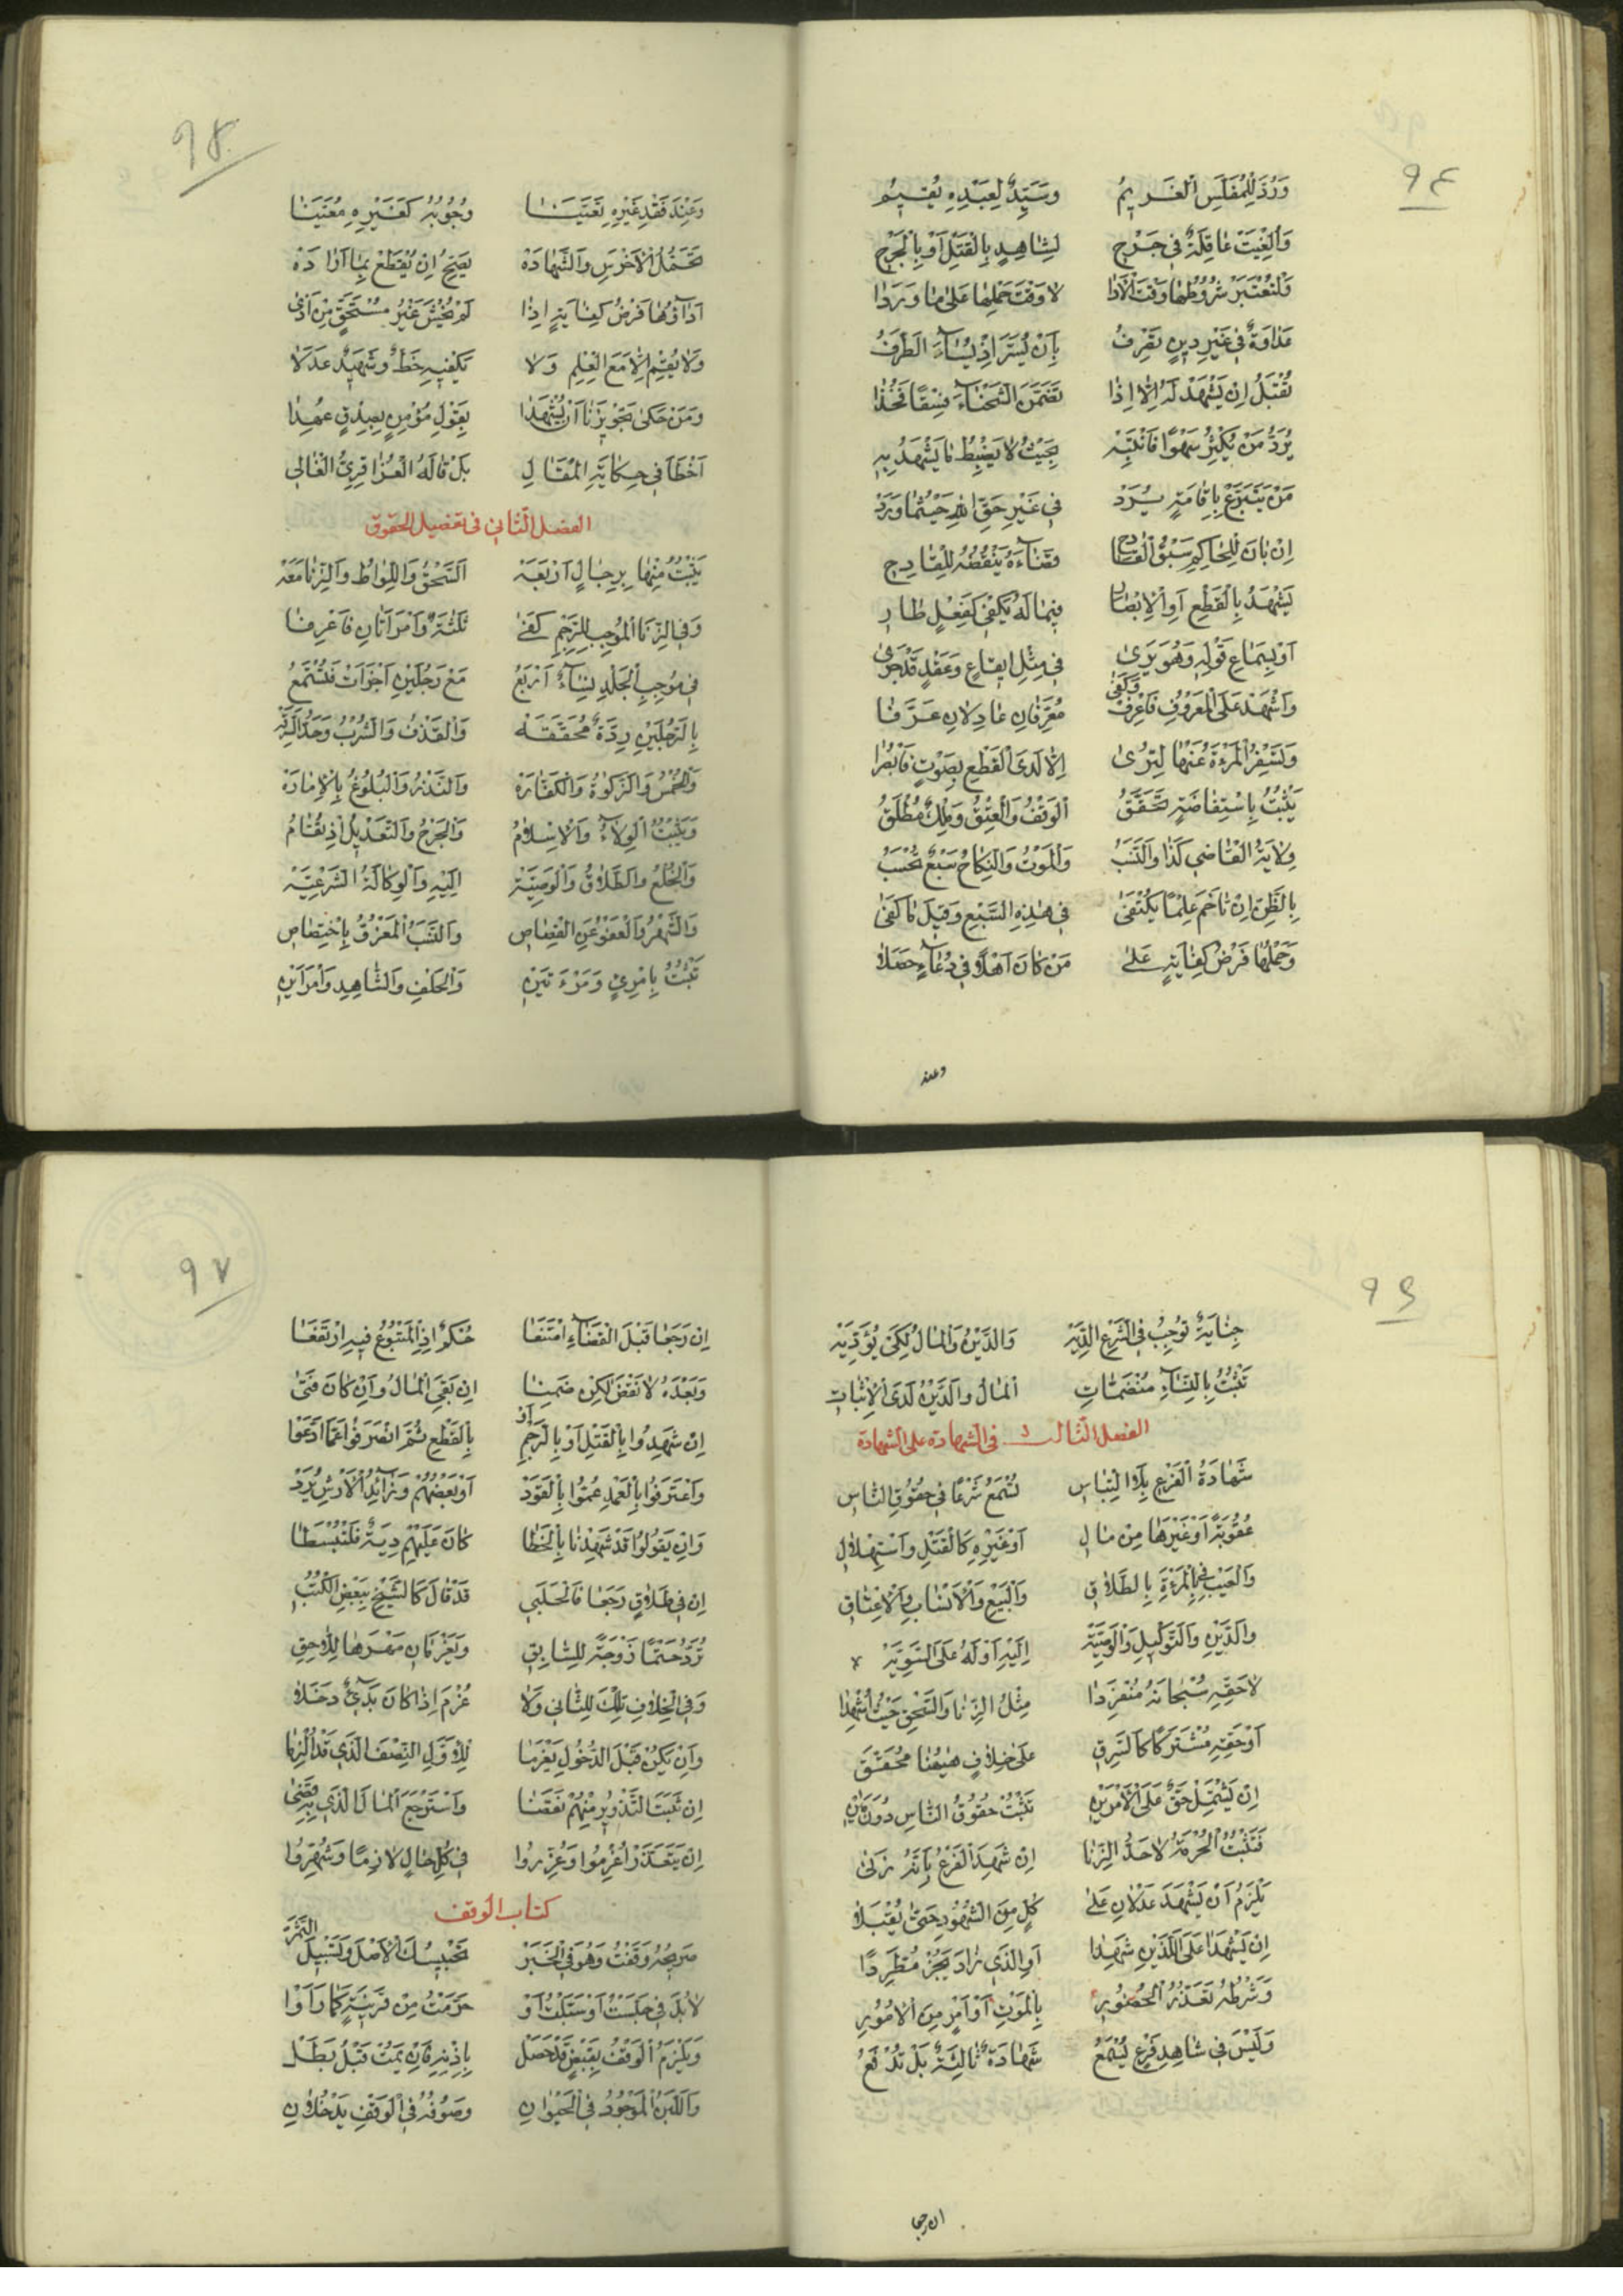 ٩٤
وَرُدَّ لِلْمُفَلَّسِ الْغَرِيمُ وَسَيِّدٌ لِعَبْدِهِ يُقِيمُ
وَأُلْغِيَتْ عَاقِلَةٌ فِي جَرْحِ لِشَاهِدٍ بِالْقَتْلِ أَوْ بِالْجَرْحِ
وَلْتُعْتَبَرْ شُرُوطُهَا وَقْتَ الْأَدَا لَا وَقْتَ حَمْلِهَا عَلَى مَا وَرَدَا
عَدَاوَةٌ فِي غَيْرِ دِينٍ تَقْرِفُ بِأَنْ يُسَرَّ إِذْ يُسَاءُ الطَّرَفُ
تُقْبَلُ إِنْ يَشْهَدْ لَهُ إِلَّا إِذَا تَضَمَّنَ الشَّحْنَاءُ فِسْقًا فَخُذَا
يُرَدُّ مَنْ يُكْثِرُ سَهْوًا فَانْتَبِهْ بِحَيْثُ لَا يَضْبِطُ مَا يَشْهَدُ بِهِ
مَنْ يَتَبَرَّعْ بِإِقَامَةٍ يُرَدْ فِي غَيْرِ حَقِّ اللهِ حَيْثُمَا وَرَدْ
إِنْ بَانَ لِلْحَاكِمِ سَبْقُ الْقَادِحِ قَضَاءَهُ يَنْقُضُهُ لِلْقَادِحِ
يَشْهَدُ بِالْقَطْعِ أَوِ الْإِبْصَارِ فِيمَا لَهُ يَكْفِي كَفِعْلٍ طَارِ
أَوْ بِسَمَاعِ قَوْلِهِ وَهُوَ يَرَى فِي مِثْلِ إِيقَاعٍ وَعَقْدٍ قَدْ جَرَى
وَاشْهَدْ عَلَى الْمَعْرُوفِ فَاعْرِفْ وَكَفَى مُعَرِّفَانِ عَادِلَانِ عَرَّفَا
وَتُسْفِرُ الْمَرْءَةُ عَنْهَا لِتُرَى إِلَّا لَدَى الْقَطْعِ بِصَوْتٍ
يَثْبُتُ بِاسْتِفَاضَةٍ تُحَقَّقُ الْوَقْفُ وَالْعِتْقُ وَمِلْكٌ مُطْلَقُ
وِلَايَةُ الْقَاضِي كَذَا وَالنَّسَبُ وَالْمَوْتُ وَالنِّكَاحُ سَبْعٌ تُحْسَبُ
بِالظَّنِّ إِنْ تَاخَمَ عِلْمًا يُكْتَفَى فِي هٰذِهِ السَّبْعِ وَقِيلَ مَا كَفَى
وَحَمْلُهَا فَرْضُ كِفَايَةٍ عَلَى مَنْ كَانَ أَهْلًا فِي دُعَاءٍ حَصَلَا
وعند
٩٥
وَعِنْدَ فَقْدِ غَيْرِهِ تَعَيَّنَا وُجُوبُهُ كَغَيْرِهِ مُعَيَّنَا
تَحَمُّلُ الْأَخْرَسِ وَالشَّهَادَهْ يَصِحُّ إِنْ يُقْطَعْ بِمَا أَرَادَهْ
أَدَاؤُهَا فَرْضُ كِفَايَةٍ إِذَا لَمْ يُخْشَ غَيْرُ مُسْتَحَقٍّ مِنْ أَذَى
وَلَا يُقَمْ إِلَّا مَعَ الْعِلْمِ وَلَا يَكْفِيهِ خَطٌّ وَشَهِيدٌ عَدَلَا
وَمَنْ حَكَى تَجْوِيزَنَا أَنْ يُشْهَدَا بِقَوْلِ مُؤْمِنٍ بِصِدْقٍ عُهِدَا
أَخْطَأَ فِي حِكَايَةِ الْمَقَالِ بَلْ قَالَهُ الْعُزَاقِرِيُّ الْغَالِي
الفصل الثاني في تفصيل الحقوق
يَثْبُتُ مِنْهَا بِرِجَالٍ أَرْبَعَهْ السَّحْقُ وَاللِّوَاطُ وَالزِّنَا مَعَهْ
وَفِي الزِّنَا الْمُوجِبِ لِلرَّجْمِ كَفَى ثَلٰثَةٌ وَامْرَأَتَانِ فَاعْرِفَا
فِي مُوجِبِ الْجَلْدِ نِسَاءٌ أَرْبَعُ مَعْ رَجُلَيْنِ أَجْزَأَتْ فَتُسْمَعُ
بِالرَّجُلَيْنِ رِدَّةٌ مُحَقَّقَهْ وَالْقَذْفُ وَالشُّرْبُ وَحَدُّ السَّرِقَهْ
وَالْخُمْسُ وَالزَّكٰوةُ وَالْكَفَّارَهْ وَالنَّذْرُ وَالْبُلُوغُ بِالْإِمَارَهْ
وَيَثْبُتُ الْوِلَاءُ وَالْإِسْلَامُ وَالْجَرْحُ وَالتَّعْدِيلُ إِذْ يُقَامُ
وَالْخُلْعُ وَالطَّلَاقُ وَالْوَصِيَّهْ إِلَيْهِ وَالْوَكَالَةُ الشَّرْعِيَّهْ
وَالشَّهْرُ وَالْعَفْوُ عَنِ الْقِصَاصِ وَالنَّسَبُ الْمَعْزُوُّ بِاخْتِصَاصِ
تَثْبُتُ بِامْرِئٍ وَمَرْءَتَيْنِ وَالْحَلْفِ وَالشَّاهِدِ وَامْرَأَيْنِ
٩٦
جِنَايَةٌ تُوجِبُ فِي الشَّرْعِ الدِّيَهْ وَالدَّيْنُ وَالْمَالُ لِكَيْ يُؤَدِّيَهْ
تَثْبُتُ بِالنِّسَاءِ مُنْضَمَّاتِ الْمَالُ وَالدَّيْنُ لَدَى الْإِثْبَاتِ
الفصل الثالث في الشهادة على الشهادة
شَهَادَةُ الْفَرْعِ بِلَا الْتِبَاسِ تُسْمَعُ شَرْعًا فِي حُقُوقِ النَّاسِ
عُقُوبَةً أَوْ غَيْرَهَا مِنْ مَالِ أَوْ غَيْرِهِ كَالْقَتْلِ وَاسْتِهْلَالِ
وَالْعَيْبِ فِي الْمَرْءَةِ بِالطَّلَاقِ وَالْبَيْعِ وَالْأَنْسَابِ وَالْإِعْتَاقِ
وَالدَّيْنِ وَالتَّوْكِيلِ وَالْوَصِيَّهْ إِلَيْهِ أَوْ لَهُ عَلَى السَّوِيَّهْ
لَا حَقِّهِ سُبْحَانَهُ مُنْفَرِدَا مِثْلُ الزِّنَا وَالسَّحْقِ حَيْثُ أُشْهِدَا
أَوْ حَقِّهِ مُشْتَرَكًا كَالسَّرِقِ عَلَى خِلَافٍ هٰيهُنَا مُحَقَّقِ
إِنْ يَشْتَمِلْ حَقٌّ عَلَى الْأَمْرَيْنِ تَثْبُتْ حُقُوقُ النَّاسِ دُونَ
فَتَثْبُتُ الْحُرْمَةُ لَا حَدُّ الزِّنَا إِنْ شَهِدَ الْفَرْعُ بِأَنَّهُ زَنَى
يَلْزَمُ أَنْ يَشْهَدَ عَدْلَانِ عَلَى كُلٍّ مِنَ الشُّهُودِ حَتَّى يُقْبَلَا
إِنْ يَشْهَدَا عَلَى اللَّذَيْنِ شَهِدَا أَوِ الَّذِي زَادَ يَجُزْ مُطَّرِدًا
وَشَرْطُهُ تَعَذُّرُ الْحُضُورِ بِالْمَوْتِ أَوْ أَمْرٍ مِنَ الْأُمُورِ
وَلَيْسَ فِي شَاهِدِ فَرْعٍ تُسْمَعُ شَهَادَةٌ ثَالِثَةٌ بَلْ تُدْفَعُ
ان رجعا
٩٧
إِنْ رَجَعَا قَبْلَ الْقَضَاءِ امْتَنَعَا حُكْمٌ إِذِ الْمَتْبُوعُ فِيهِ ارْتَفَعَا
وَبَعْدَهُ لَا نَقْضَ لٰكِنْ ضَمِنَا إِنْ بَقِيَ الْمَالُ وَإِنْ كَانَ فَنَى
إِنْ شَهِدُوا بِالْقَتْلِ أَوْ بِالرَّجْمِ أَوْ بِالْقَطْعِ ثُمَّ انْصَرَفُوا عَمَّا ادَّعَوْا
وَاعْتَرَفُوا بِالْعَمْدِ عُمُّوا بِالْقَوَدْ أَوْ بَعْضُهُمْ وَزَائِدُ الْأَرْشِ يُرَدْ
وَإِنْ يَقُولُوا قَدْ شَهِدْنَا بِالْخَطَا كَانَ عَلَيْهِمْ دِيَةٌ فَلْتُبْسَطَا
إِنْ فِي طَلَاقٍ رَجَعَا فَالْحَلَبِي قَدْ قَالَ كَالشَّيْخِ بِبَعْضِ الْكُتُبِ
تُرَدُّ حَتْمًا زَوْجَةً لِلسَّابِقِ وَيَغْرَمَانِ مَهْرَهَا لِلَّاحِقِ
وَفِي الْخِلَافِ تِلْكَ لِلثَّانِي وَلَا غُرْمَ إِذَا كَانَ بَدِيٌّ دَخَلَا
وَإِنْ يَكُنْ قَبْلَ الدُّخُولِ يَغْرَمَا لِلْأَوَّلِ النِّصْفَ الَّذِي قَدْ أُلْزِمَا
إِنْ ثَبَتَ التَّزْوِيرُ مِنْهُمْ نَقَضَا وَاسْتَرْجَعَ الْمَالَ الَّذِي بِهِ قَضَى
إِنْ يَتَعَذَّرْ أُغْرِمُوا وَعُزِّرُوا فِي كُلِّ حَالٍ لَازِمًا وَشُهِّرُوا
كتاب الوقف
صَرِيحُهُ وَقَفْتُ وَهُوَ فِي الْخَبَرْ تَحْبِيسُكَ الْأَصْلَ وَتَسْبِيلُ الثَّمَرَةْ
لَابُدَّ فِي حَبَسْتُ أَوْ سَبَّلْتُ أَوْ حَرَّمْتُ مِنْ قَرِينَةٍ كَمَا رَأَوْا
وَيَلْزَمُ الْوَقْفُ بِقَبْضٍ قَدْ حَصَلْ بِإِذْنِهِ فَإِنْ يَمُتْ قَبْلُ بَطَلْ
وَاللَّبَنُ الْمَوْجُودُ فِي الْحَيْوَانِ وَصُوفُهُ فِي الْوَقْفِ يَدْخُلَانِ